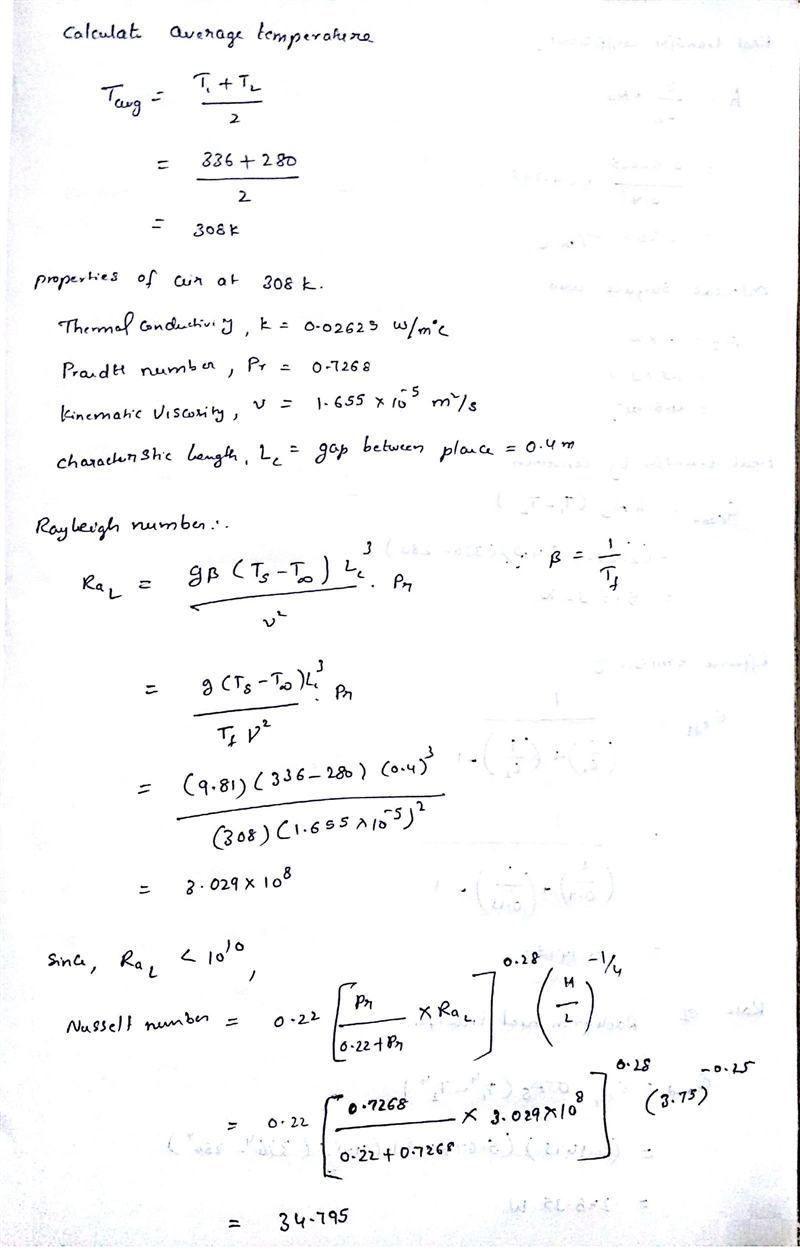 Calculat average temperature
Tavg = T₁ + T₂ / 2
= 336 + 280 / 2
= 308 k
properties of air at 308 k.
Thermal Conductivity, k = 0.02623 w/m°c
Prandtl number, Pr = 0.7268
Kinematic Viscosity, ν = 1.655 × 10⁻⁵ m²/s
characteristic Length, Lc = gap between place = 0.4 m
Rayleigh number :.
Ra_L = gβ (Ts - T∞) Lc³ / ν² . Pr ∵ β = 1 / Tf
= g (Ts - T∞) Lc³ / Tf ν² . Pr
= (9.81) (336 - 280) (0.4)³ / (308) (1.655 × 10⁻⁵)²
= 3.029 × 10⁸
Since, Ra_L < 10¹⁰,
Nusselt number = 0.22 [ Pr / 0.22 + Pr × Ra_L ]^0.28 ( H / L )^-1/4
= 0.22 [ 0.7268 / 0.22 + 0.7268 × 3.029 × 10⁸ ]^0.28 (3.75)^-0.25
= 34.795